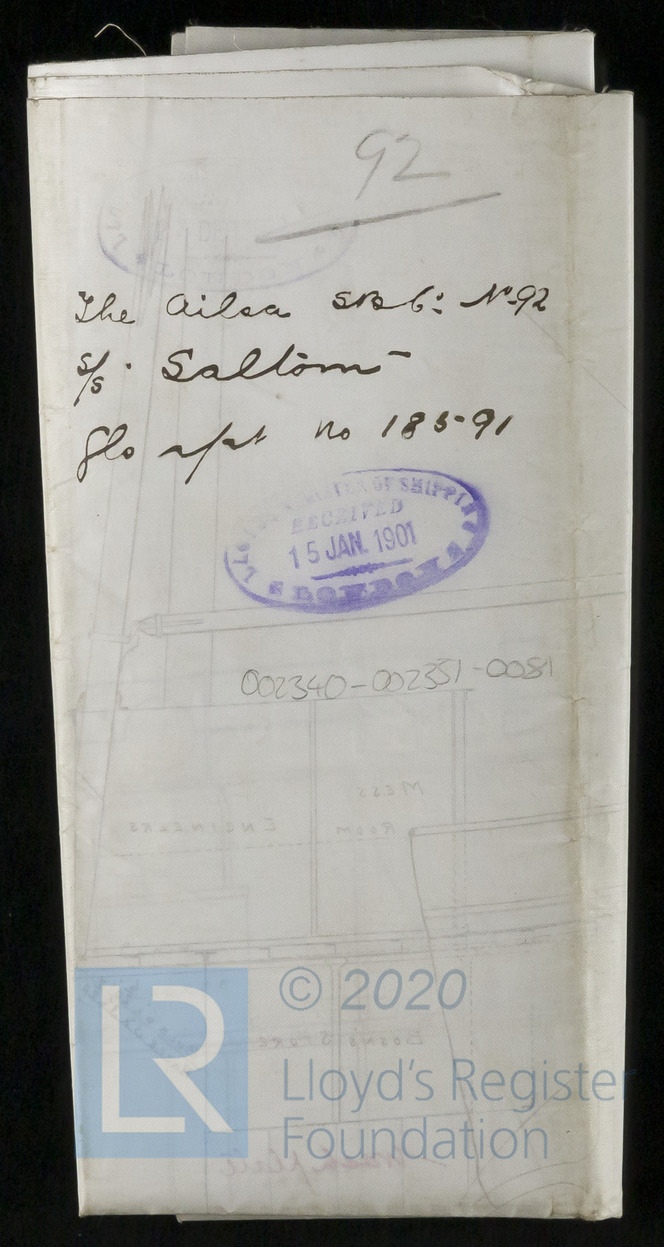 92
The Ailsa SB Co: No 92
S/S. Saltom
Glo rpt no 18591
LLOYD'S REGISTER OF SHIPPING
RECEIVED
15 JAN. 1901
LONDON
002340-002351-0081
MESS
ENGINEERS ROOM
LR © 2020
BOSNS STORE
Lloyd's Register
Foundation